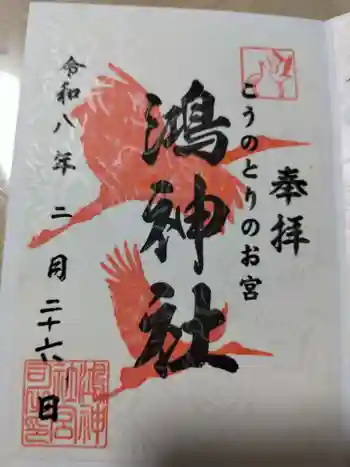 奉拝
こうのとりのお宮
鴻神社
令和八年二月二十六日
鴻神
社宮
司之印